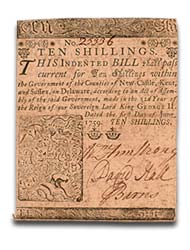 No. 23396
TEN SHILLINGS.
THIS INDENTED BILL shall pass
current for Ten Shillings within
the Government of the Counties of New-Castle, Kent,
and Sussex, on Delaware, according to an Act of Assem-
bly of the said Government, made in the 32d Year of
the Reign of our Sovereign Lord King GEORGE II.
Dated the first Day of June,
1759. TEN SHILLINGS.
Wm Armstrong
David Hall
Barns